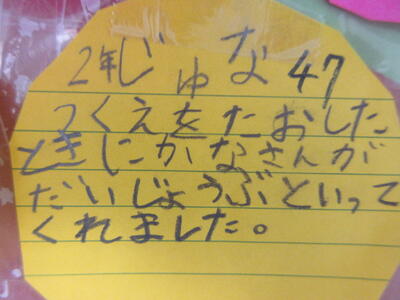 2年じゅな47
つくえをたおした
ときにかなさんが
だいじょうぶといって
くれました。